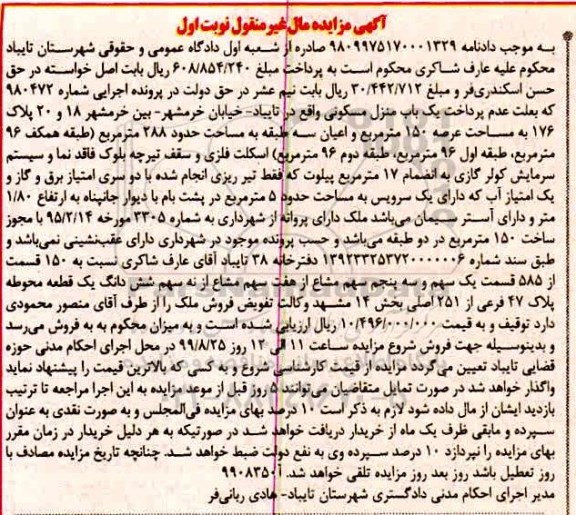 آگهی مزایده مال غیر منقول نوبت اول
به موجب دادنامه ۹۸۰۹۹۷۵۱۷۰۰۰۱۳۲۹ صادره از شعبه اول دادگاه عمومی و حقوقی شهرستان تایباد
محکوم علیه عارف شاکری محکوم است به پرداخت مبلغ ۶۰۸/۸۵۴/۲۴۰ ریال بابت اصل خواسته در حق
حسن اسکندری‌فر و مبلغ ۳۰/۴۴۲/۷۱۲ ریال بابت نیم عشر در حق دولت در پرونده اجرایی شماره ۹۸۰۴۷۲
که بعلت عدم پرداخت یک باب منزل مسکونی واقع در تایباد- خیابان خرمشهر- بین خرمشهر ۱۸ و ۲۰ پلاک
۱۷۶ به مساحت عرصه ۱۵۰ مترمربع و اعیان سه طبقه به مساحت حدود ۲۸۸ مترمربع (طبقه همکف ۹۶
مترمربع، طبقه اول ۹۶ مترمربع، طبقه دوم ۹۶ مترمربع) اسکلت فلزی و سقف تیرچه بلوک فاقد نما و سیستم
سرمایش کولر گازی به انضمام ۱۷ مترمربع پیلوت که فقط تیر ریزی انجام شده با دو سری امتیاز برق و گاز و
یک امتیاز آب که دارای یک سرویس به مساحت حدود ۵ مترمربع در پشت بام با دیوار جانپناه به ارتفاع ۱/۸۰
متر و دارای آستر سیمان می‌باشد ملک دارای پروانه از شهرداری به شماره ۳۳۰۵ مورخه ۹۵/۲/۱۴ با مجوز
ساخت ۱۵۰ مترمربع در دو طبقه می‌باشد و حسب پرونده موجود در شهرداری دارای عقب‌نشینی نمی‌باشد و
طبق سند شماره ۱۳۹۲۳۳۲۵۳۷۲۰۰۰۰۰۰۶ دفترخانه ۳۸ تایباد آقای عارف شاکری نسبت به ۱۵۰ قسمت
از ۵۸۵ قسمت یک سهم و سه پنجم سهم مشاع از هفت سهم مشاع از نه سهم شش دانگ یک قطعه محوطه
پلاک ۴۷ فرعی از ۲۵۱ اصلی بخش ۱۴ مشهد وکالت تفویض فروش ملک را از طرف آقای منصور محمودی
دارد توقیف و به قیمت ۱۰/۴۹۶/۰۰۰/۰۰۰ ریال ارزیابی شده است و به میزان محکوم به به فروش می‌رسد
و بدینوسیله جهت فروش شروع مزایده ساعت ۱۱ الی ۱۲ روز ۹۹/۸/۲۵ در محل اجرای احکام مدنی حوزه
قضایی تایباد تعیین می‌گردد مزایده از قیمت کارشناسی شروع و به کسی که بالاترین قیمت را پیشنهاد نماید
واگذار خواهد شد در صورت تمایل متقاضیان می‌توانند ۵ روز قبل از موعد مزایده به این اجرا مراجعه تا ترتیب
بازدید ایشان از مال داده شود لازم به ذکر است ۱۰ درصد بهای مزایده فی‌المجلس و به صورت نقدی به عنوان
سپرده و مابقی ظرف یک ماه از خریدار دریافت خواهد شد در صورتیکه به هر دلیل خریدار در زمان مقرر
بهای مزایده را نپردازد ۱۰ درصد سپرده وی به نفع دولت ضبط خواهد شد. چنانچه تاریخ مزایده مصادف با
روز تعطیل باشد روز بعد روز مزایده تلقی خواهد شد. ۹۹۰۸۳۵۰
مدیر اجرای احکام مدنی دادگستری شهرستان تایباد- هادی ربانی‌فر